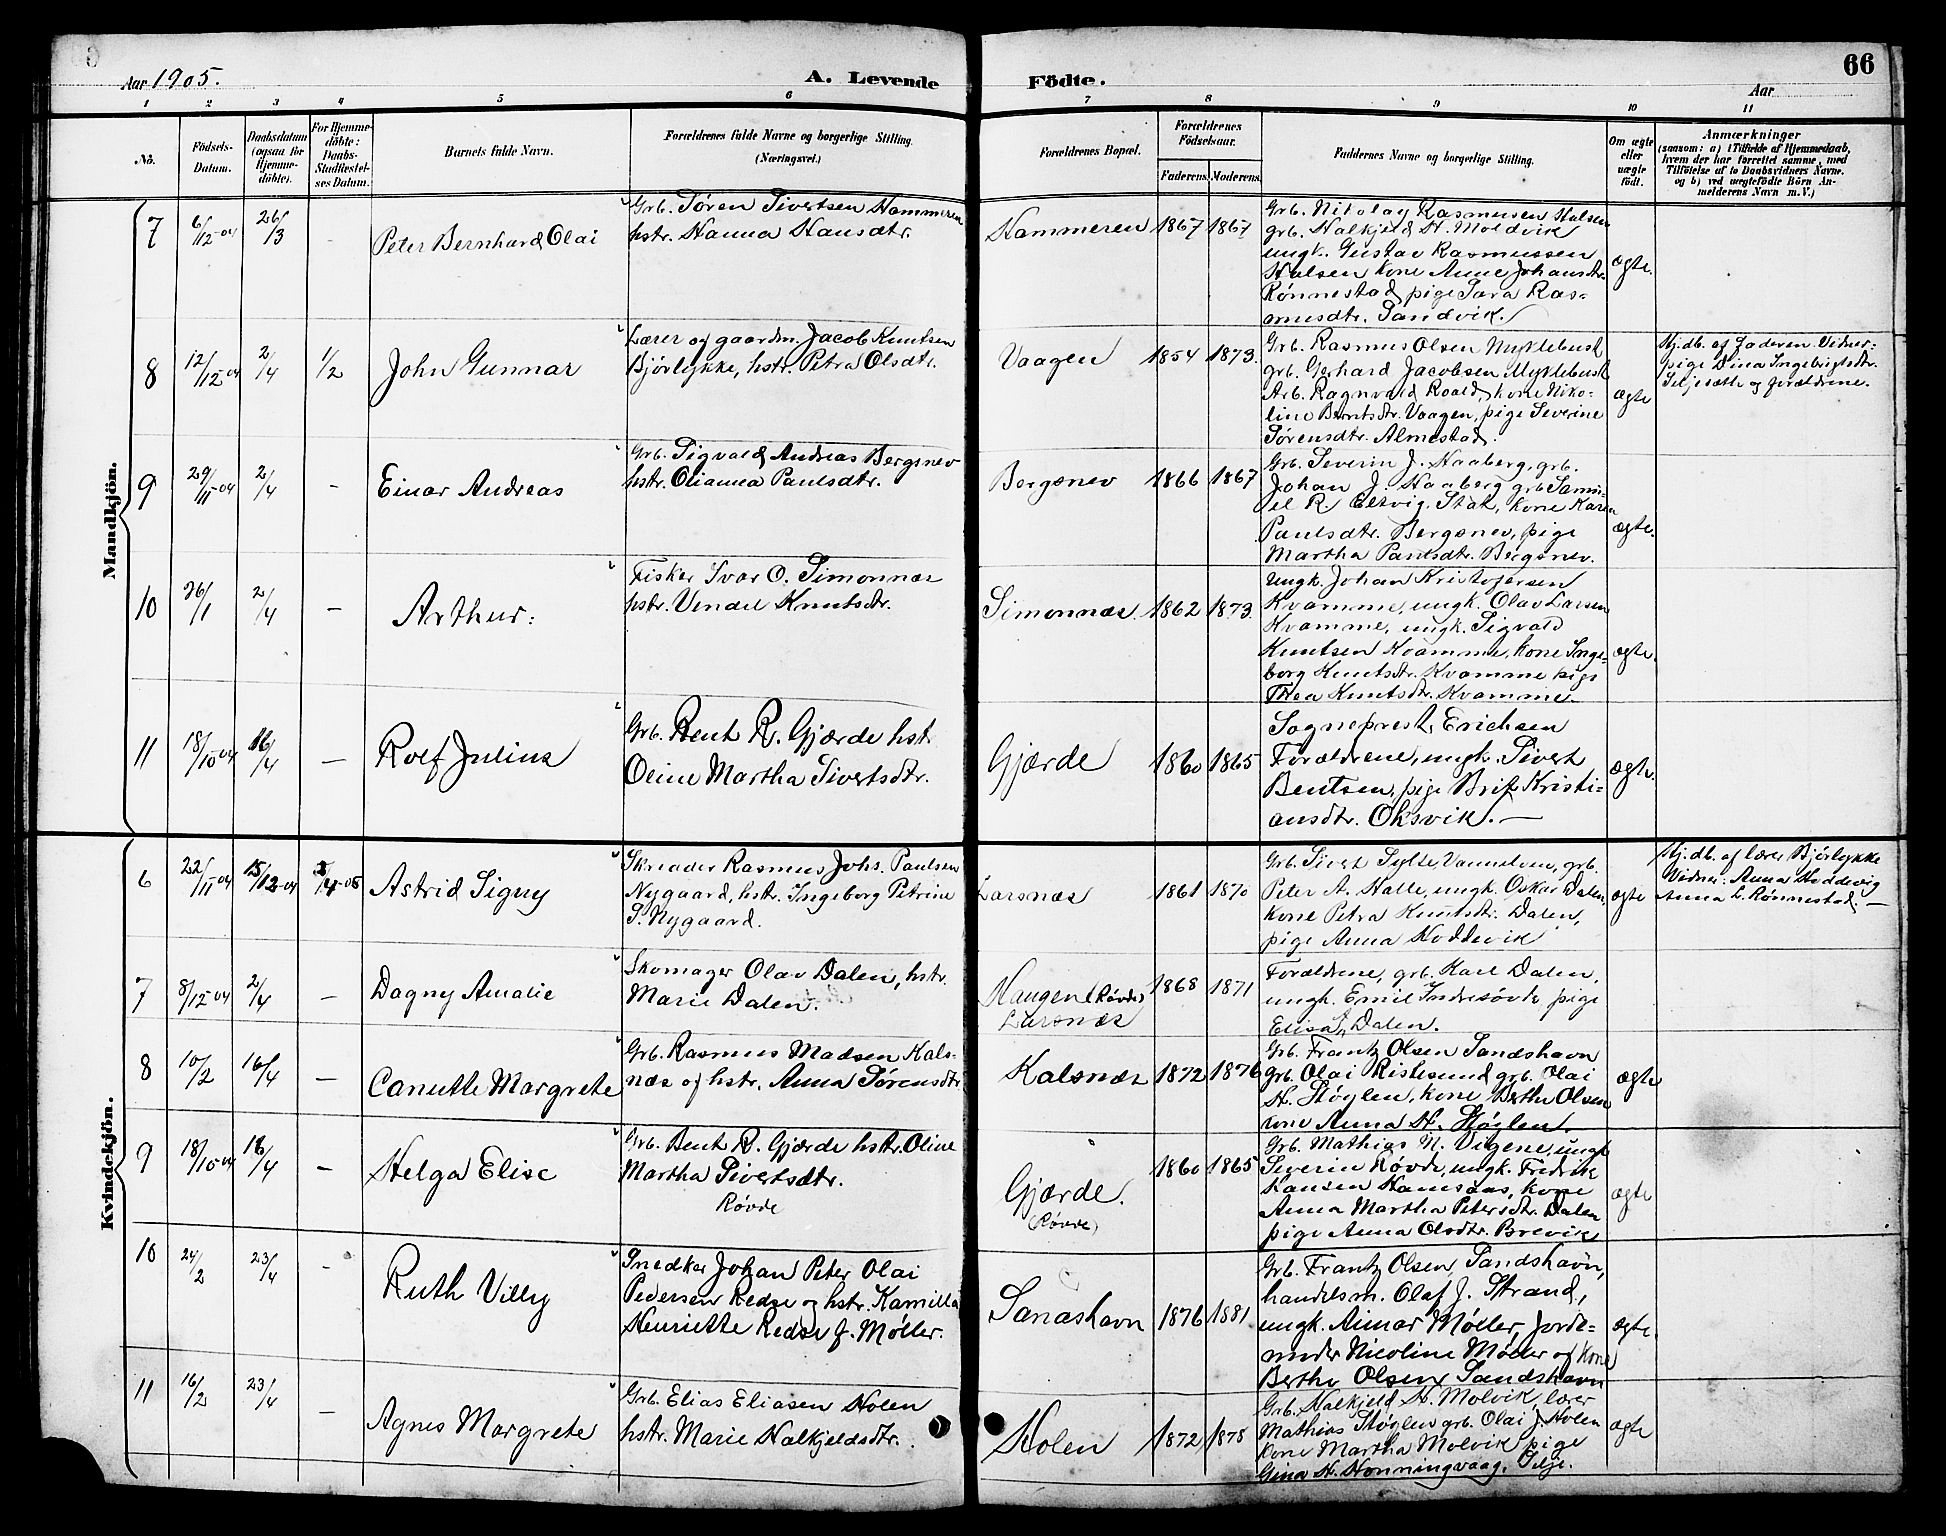 Aar 1905.
A. Levende
Födte.
66
Aar
1 2 3 4 5 6 7 8 9 10 11
No.
Födsels-
Datum.
Daabsdatum
(ogsaa for
Hjemme-
döbte).
For Hjemme-
döbte:
Daabs-
Stadfæstel-
ses Datum.
Barnets fulde Navn.
Forældrenes fulde Navne og borgerlige Stilling.
(Næringsvei.)
Forældrenes Bopæl.
Forældrenes
Födselsaar.
Faderens. Moderens.
Faddernes Navne og borgerlige Stilling.
Om ægte
eller
uægte
födt.
Anmærkninger
(saasom: a) i Tilfælde af Hjemmedaab,
hvem der har forrettet samme, med
Tilföielse af to Daabsvidners Navne.
og b) ved uægtefödte Börn An-
melderens Navn m. V.)
Mandkjön.
7
6/12-04
26/3
-
Peter Bernhard Olai
Grb. Sören Sivertsen Hammeren
hstr. Hanna Hansdtr.
Hammeren
1867
1867
Grb. Nikolay Rasmusen Halsen
grb. Halkjeld H. Moldvik
ungk. Gustav Rasmussen
Halsen kone Anne Johansdtr.
Rönnestad, pige Sara Ras-
musdtr. Sandvik.
ægte.
8
12/12-04
2/4
1/2
John Gunnar
Lærer og gaardm. Jacob Knutsen
Bjørlykke, hstr. Petra Olsdtr.
Vaagen
1854
1873.
Grb. Rasmus Olsen Myklebust
grb. Gerhard Jacobsen Myklebust
Arb. Ragnvald Roald, kone Niko-
line Berntsdtr. Vaagen, pige Severine
Sörensdtr. Almestad.
ægte
Hj.db. af faderen. Vidner:
pige Dina Ingebrigtsdtr.
Seljesæth og forældrene.
9
29/11-04
2/4
-
Einar Andreas
Grb. Sigvald Andreas Bergsnev
hstr. Olianna Paulsdtr.
Bergsnev
1866
1867
Grb. Severin J. Haaberg, grb.
Johan J. Haaberg grb. Samu-
el R. Eltvig, Stat, kone Karen
Paulsdtr. Bergsnev, pige
Martha Paulsdtr. Bergsnev.
ægte.
10
26/1
2/4
-
Arthur:
Fisker Ivar O. Simonnæs
hstr. Vendel Knutsdtr.
Simonnæs.
1862
1873.
Ungk. Johan Kristofersen
Kvamme, ungk. Olav Larsen
Kvamme, ungk. Sigvald
Knutsen Kvamme, kone Inge-
borg Knutsdtr. Kvamme pige
Thea Knutsdtr. Kvamme.
ægte.
11
18/10-04
16/4
-
Rolf Julius
Grb. Bent R. Gjærde hstr.
Oline Martha Sivertsdtr.
Gjærde
1860
1865
Sogneprest Erichsen
Forældrene, ungk. Sivert
Bentsen, pige Brit Kristi-
ansdtr. Oksvik. -
ægte.
Kvindekjön.
6
22/11-04
15/12-04
2/4-05
Astrid Signy
Skreader Rasmus Johs. Paulsen
Nygaard, hstr. Ingeborg Petrine
S. Nygaard.
Larsnæs
1861
1870
Grb. Sivert Sylte, Vannelven, grb.
Peter A. Halle, ungk. Oskar Dalen,
kone Petra Knutsdtr. Dalen,
pige Anna Hoddevik
ægte
Hj.db. af lærer Bjørlykke
Vidner: Anna Hoddevig
Anna L. Rönnestad; -
7
8/12-04
2/4
-
Dagny Amalie
Skomager Olav Dalen, hstr.
Marie Dalen.
Haugen (Røvde)
Larsnæs
1868
1871
Forældrene, grb. Karl Dalen,
ungk. Emil Indresövde pige
Elisa Dalen.
8
10/2
16/4
-
Canutte Margrete
Grb. Rasmus Madsen Kals-
næs og hstr. Anna Sörensdtr
Kalsnæs
1872
1876
Grb. Frantz Olsen Sandshavn
grb. Olai Ristesund grb. Olai
H. Støylen, kone Berthe Olsen
kone Anna H. Støylen.
ægte
9
18/10-04
16/4
-
Helga Elise
Grb. Bent R. Gjærde hstr. Oline
Martha Sivertsdtr.
Røvde
Gjærde.
(Røvde)
1860
1865
Grb. Mathias M. Vigene, ungk
Severin Røvde, ungk. Fredrik
Hansen Hamsaas, kone
Anna Martha Petersdtr. Dalen
pige Anna Olsdtr. Brevik
ægte
10
24/2
23/4
-
Ruth Villy
Snedker Johan Peter Olai
Pedersen Redse og hstr. Kamilla
Henriette Redse f. Møller.
Sandshavn
1876
1881
Grb. Frantz Olsen, Sandshavn,
handelsm. Olaf J. Strand,
ungk. Aimar Møller, Jorde-
moder Nicoline Møller og kone
Berthe Olsen Sandshavn
ægte.
11
16/2
23/4
-
Agnes Margrete
Grb. Elias Eliasen Holen
hstr. Marie Halkjeldsdtr.
Holen
1872
1878
Grb. Halkjeld H. Molvik, lærer
Mathias Støylen grb. Olai J. Holen
kone Martha Molvik pige
Gina H. Honningvaag, Selje.
ægte